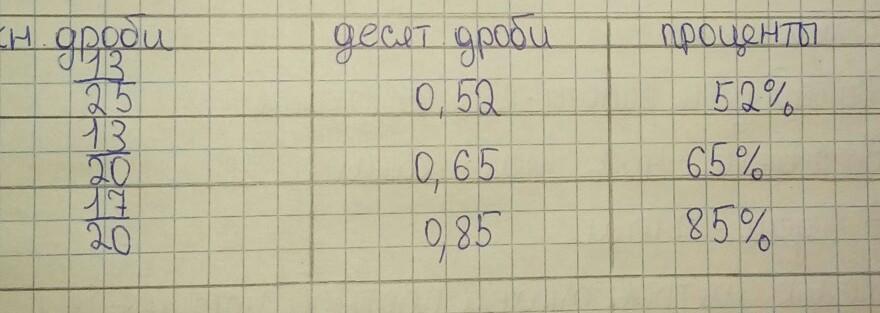 сн. дроби десят дроби проценты
13/25 0,52 52%
13/20 0,65 65%
17/20 0,85 85%